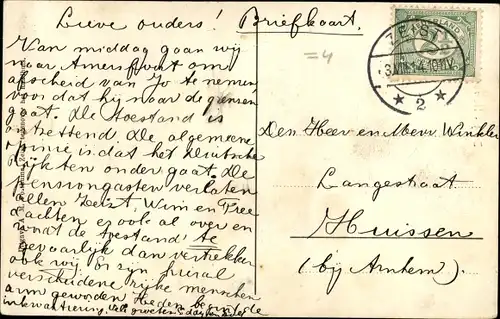 Lieve ouders!
Van middag gaan wij
naar Amersfoort om
afscheid van Jo te nemen
voor dat hij naar de grenzen
gaat. De toestand is
ontzettend. De algemeene
opinie is dat het Duitsche
Rijk ten onder gaat. De
pensiongasten verlaten
allen Zeist, Wim en Free
dachten er ook al over en
wordt de toestand te
gevaarlijk dan vertrekken
ook wij. Er zijn
verscheidene rijke menschen
arm geworden. Heden
inkwartiering
Briefkaart.
=4
ZEIST
2
Den Heer en Mevr. Winkler
Langestraat
Huissen
(bij Arnhem).